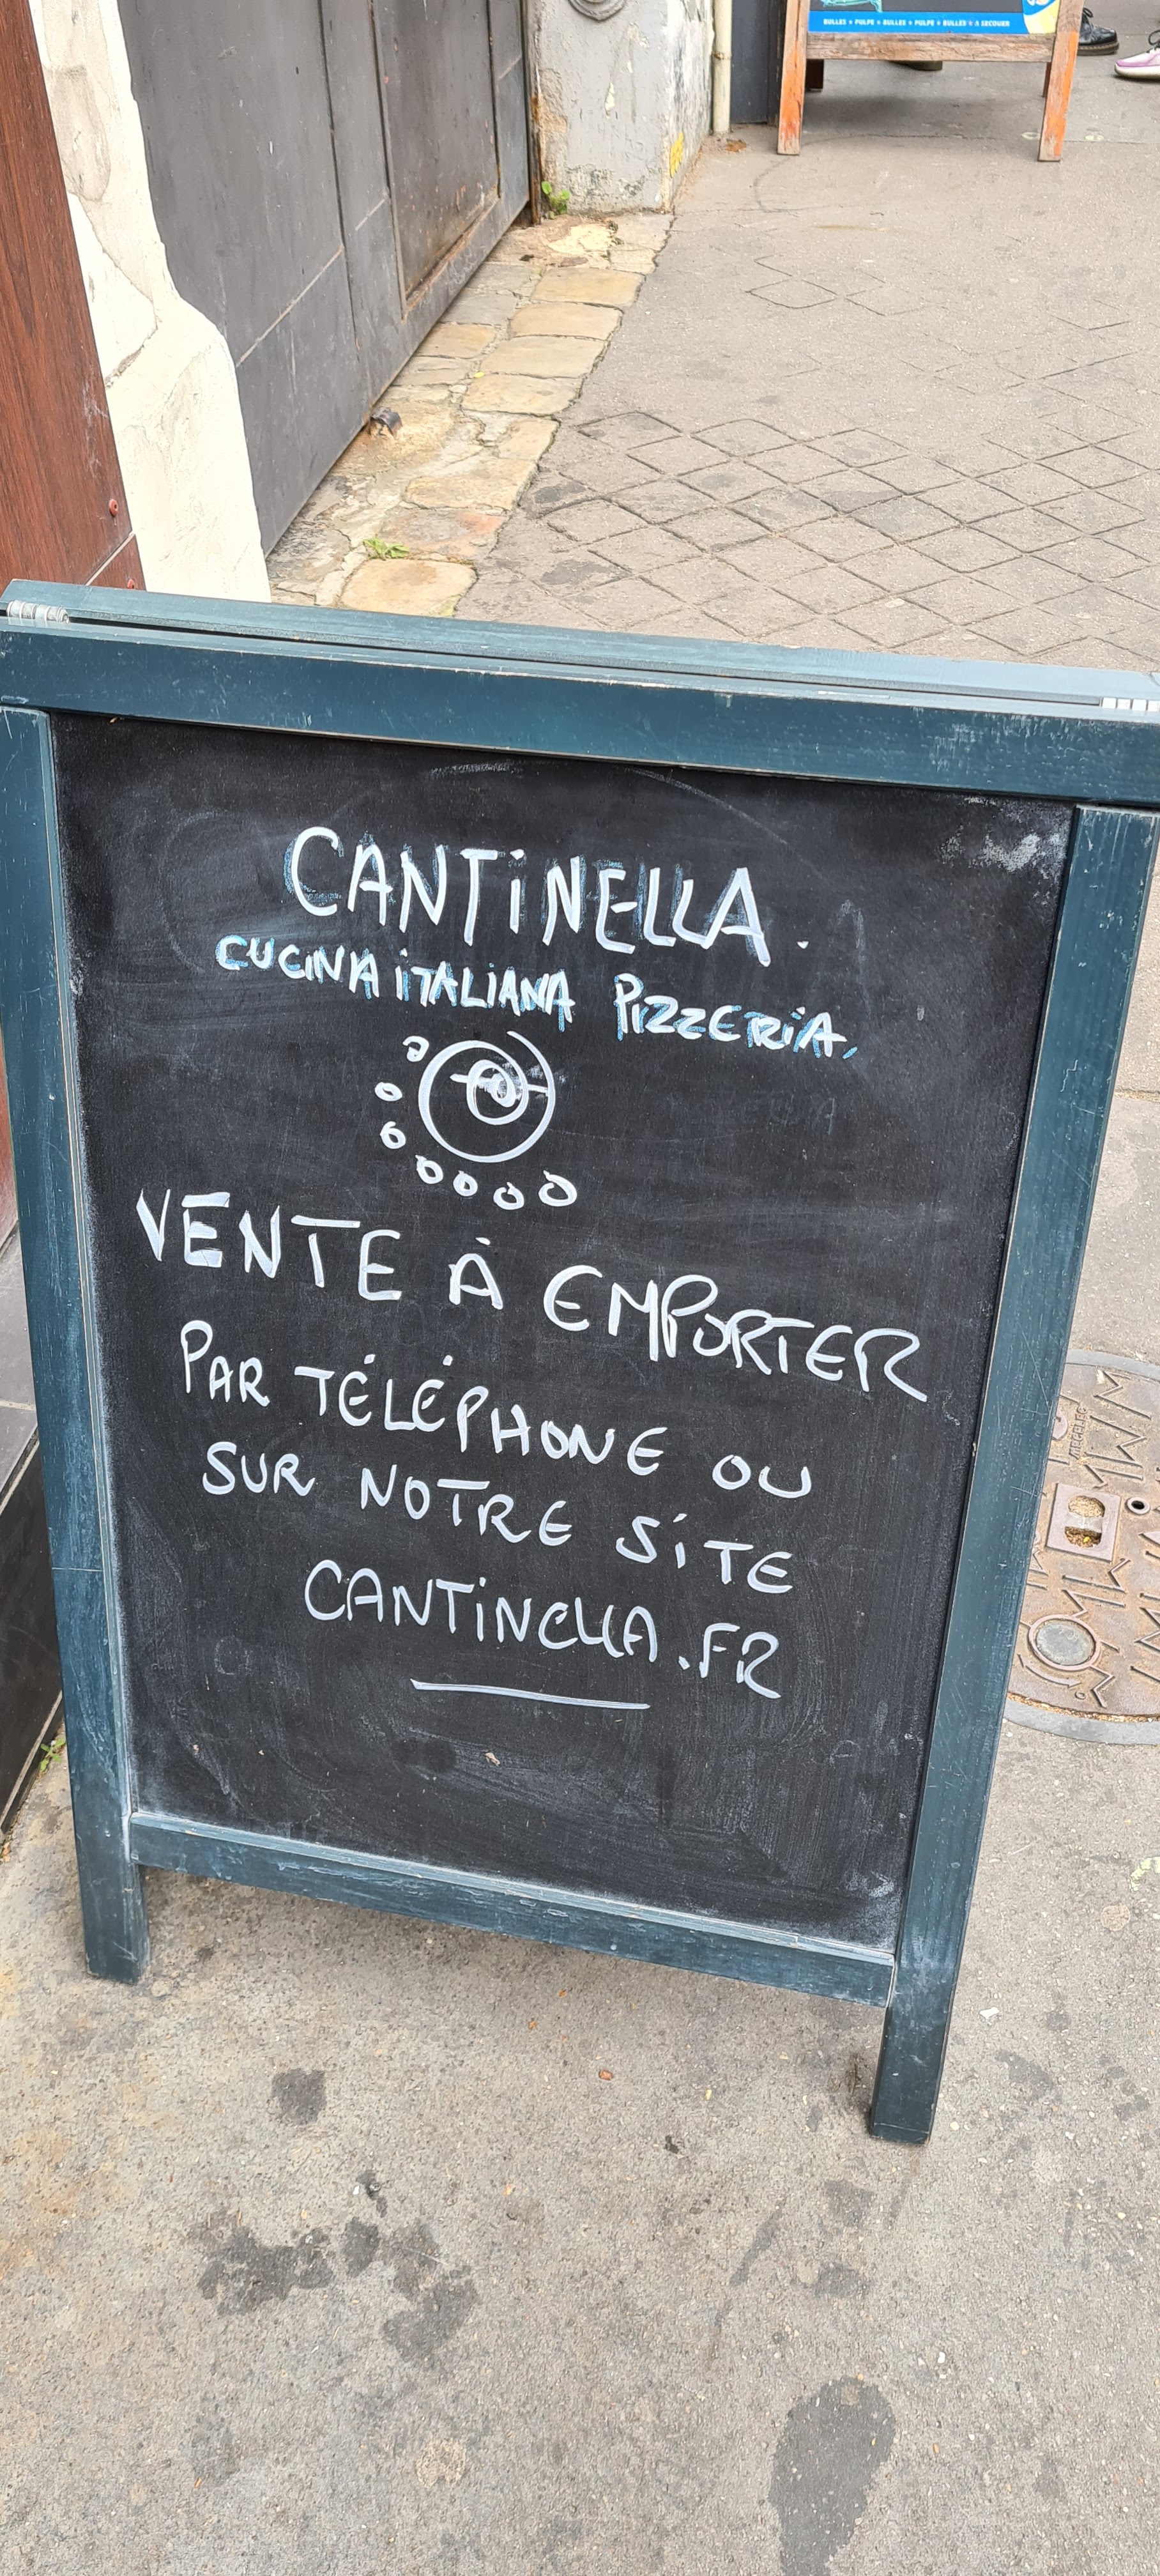 BULLES * PULPE * BULLES * PULPE * BULLES * A SECOUER
CANTiNELLA.
CUCINA iTALIANA PIZZERiA.
VENTE À EMPORTER
PAR TÉLÉPHONE OU
SUR NOTRE SiTE
CANTiNELLA.FR